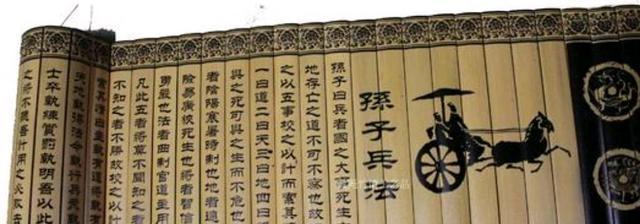 孫子兵法
孫子曰兵者國之大事死生
地存亡之道不可不察也故
之以五事校之以計而索其
一曰道二曰天三曰地四曰
與之死可與之生而不危也
者陰陽寒暑時制也地者遠
險易廣狹死生也將者智信
勇嚴也法者曲制官道主用
凡此五者將莫不聞知之者
不知之者不勝故校之以計
索其情曰主孰有道將孰有
天地孰得法令孰行兵眾孰
士卒孰練賞罰孰明吾以此
之將不聽吾計用之必敗去